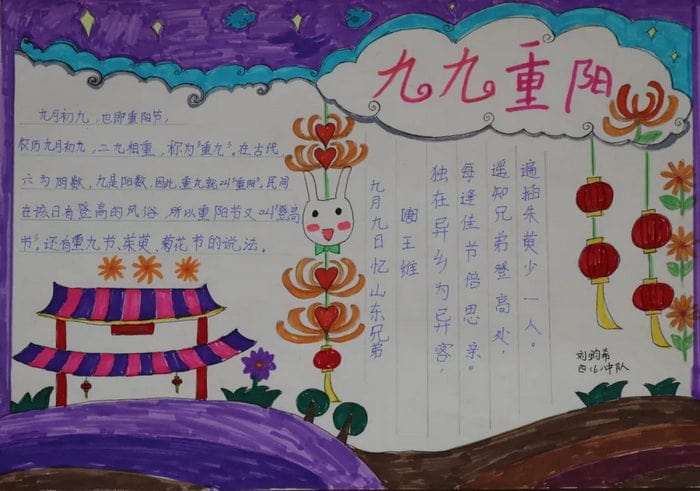 九九重阳
九月初九,也即重阳节,
农历九月初九,二九相重,称为“重九”。在古代
六为阴数,九是阳数,因此,重九就叫“重阳”。民间
在该日有登高的风俗,所以重阳节又叫“登高
节”。还有重九节、茱萸、菊花节的说法。
九月九日忆山东兄弟
王维
独在异乡为异客,
每逢佳节倍思亲。
遥知兄弟登高处,
遍插朱萸少一人。
刘
中队